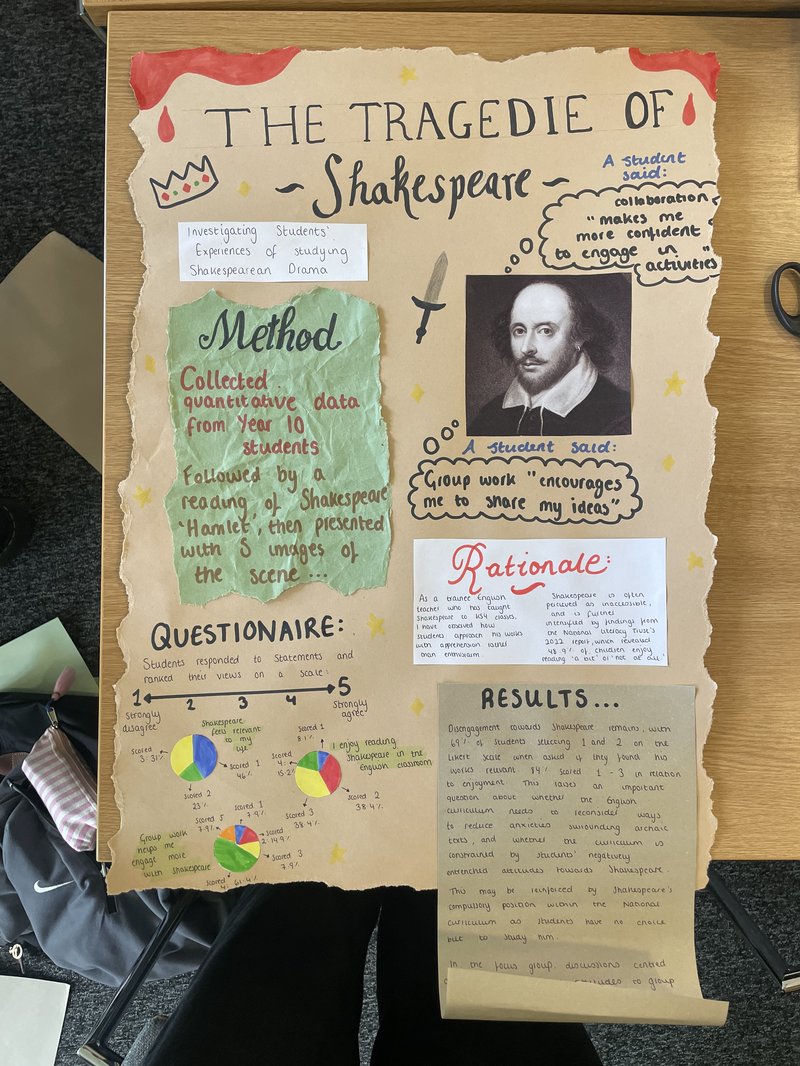 THE TRAGEDIE OF
~ Shakespeare ~
Investigating Students'
Experiences of studying
Shakespearean Drama
A student
said:
collaboration
"makes me
more confident
to engage in
activities"
Method
Collected
quantitative data
from Year 10
students
Followed by a
reading of Shakespeare
'Hamlet', then presented
with 5 images of
the scene...
A student said:
Group work "encourages
me to share my ideas"
Rationale:
As a trainee English
teacher who has taught
Shakespeare to KS4 classes,
I have observed how
students approach his works
with apprehension rather
than enthusiasm.
Shakespeare is often
perceived as inaccessible,
and is further
intensified by findings from
the National Literacy Trust's
2022 report, which revealed
48.9% of children enjoy
reading 'a bit' or 'not at all'
QUESTIONAIRE:
Students responded to Statements and
ranked their views on a scale:
1 2 3 4 5
Strongly
disagree
Strongly
agree
Shakespeare
feels relevant
to my
life
scored
3: 31%
scored 1
46%
scored 2
23%
I enjoy reading
Shakespeare in the
English classroom
scored 1
8.1%
scored
4:
15.2%
scored 2
38.4%
scored 3
38.4%
Group work
helps me
engage more
with Shakespeare
scored 5
7.9%
scored 1
7.9%
scored
2: 14.9%
scored 3
7.9%
scored
4: 61.4%
RESULTS...
Disengagement towards Shakespeare remains, with
69% of students selecting 1 and 2 on the
Likert scale when asked if they found his
works relevant. 84% scored 1-3 in relation
to enjoyment. This raises an important
question about whether the English
curriculum needs to reconsider ways
to reduce anxieties surrounding archaic
texts, and whether the curriculum is
constrained by students' negatively
entrenched attitudes towards Shakespeare.
This may be reinforced by Shakespeare's
compulsory position within the National
Curriculum as students have no choice
but to study him.
In the focus group, discussions centred
to group